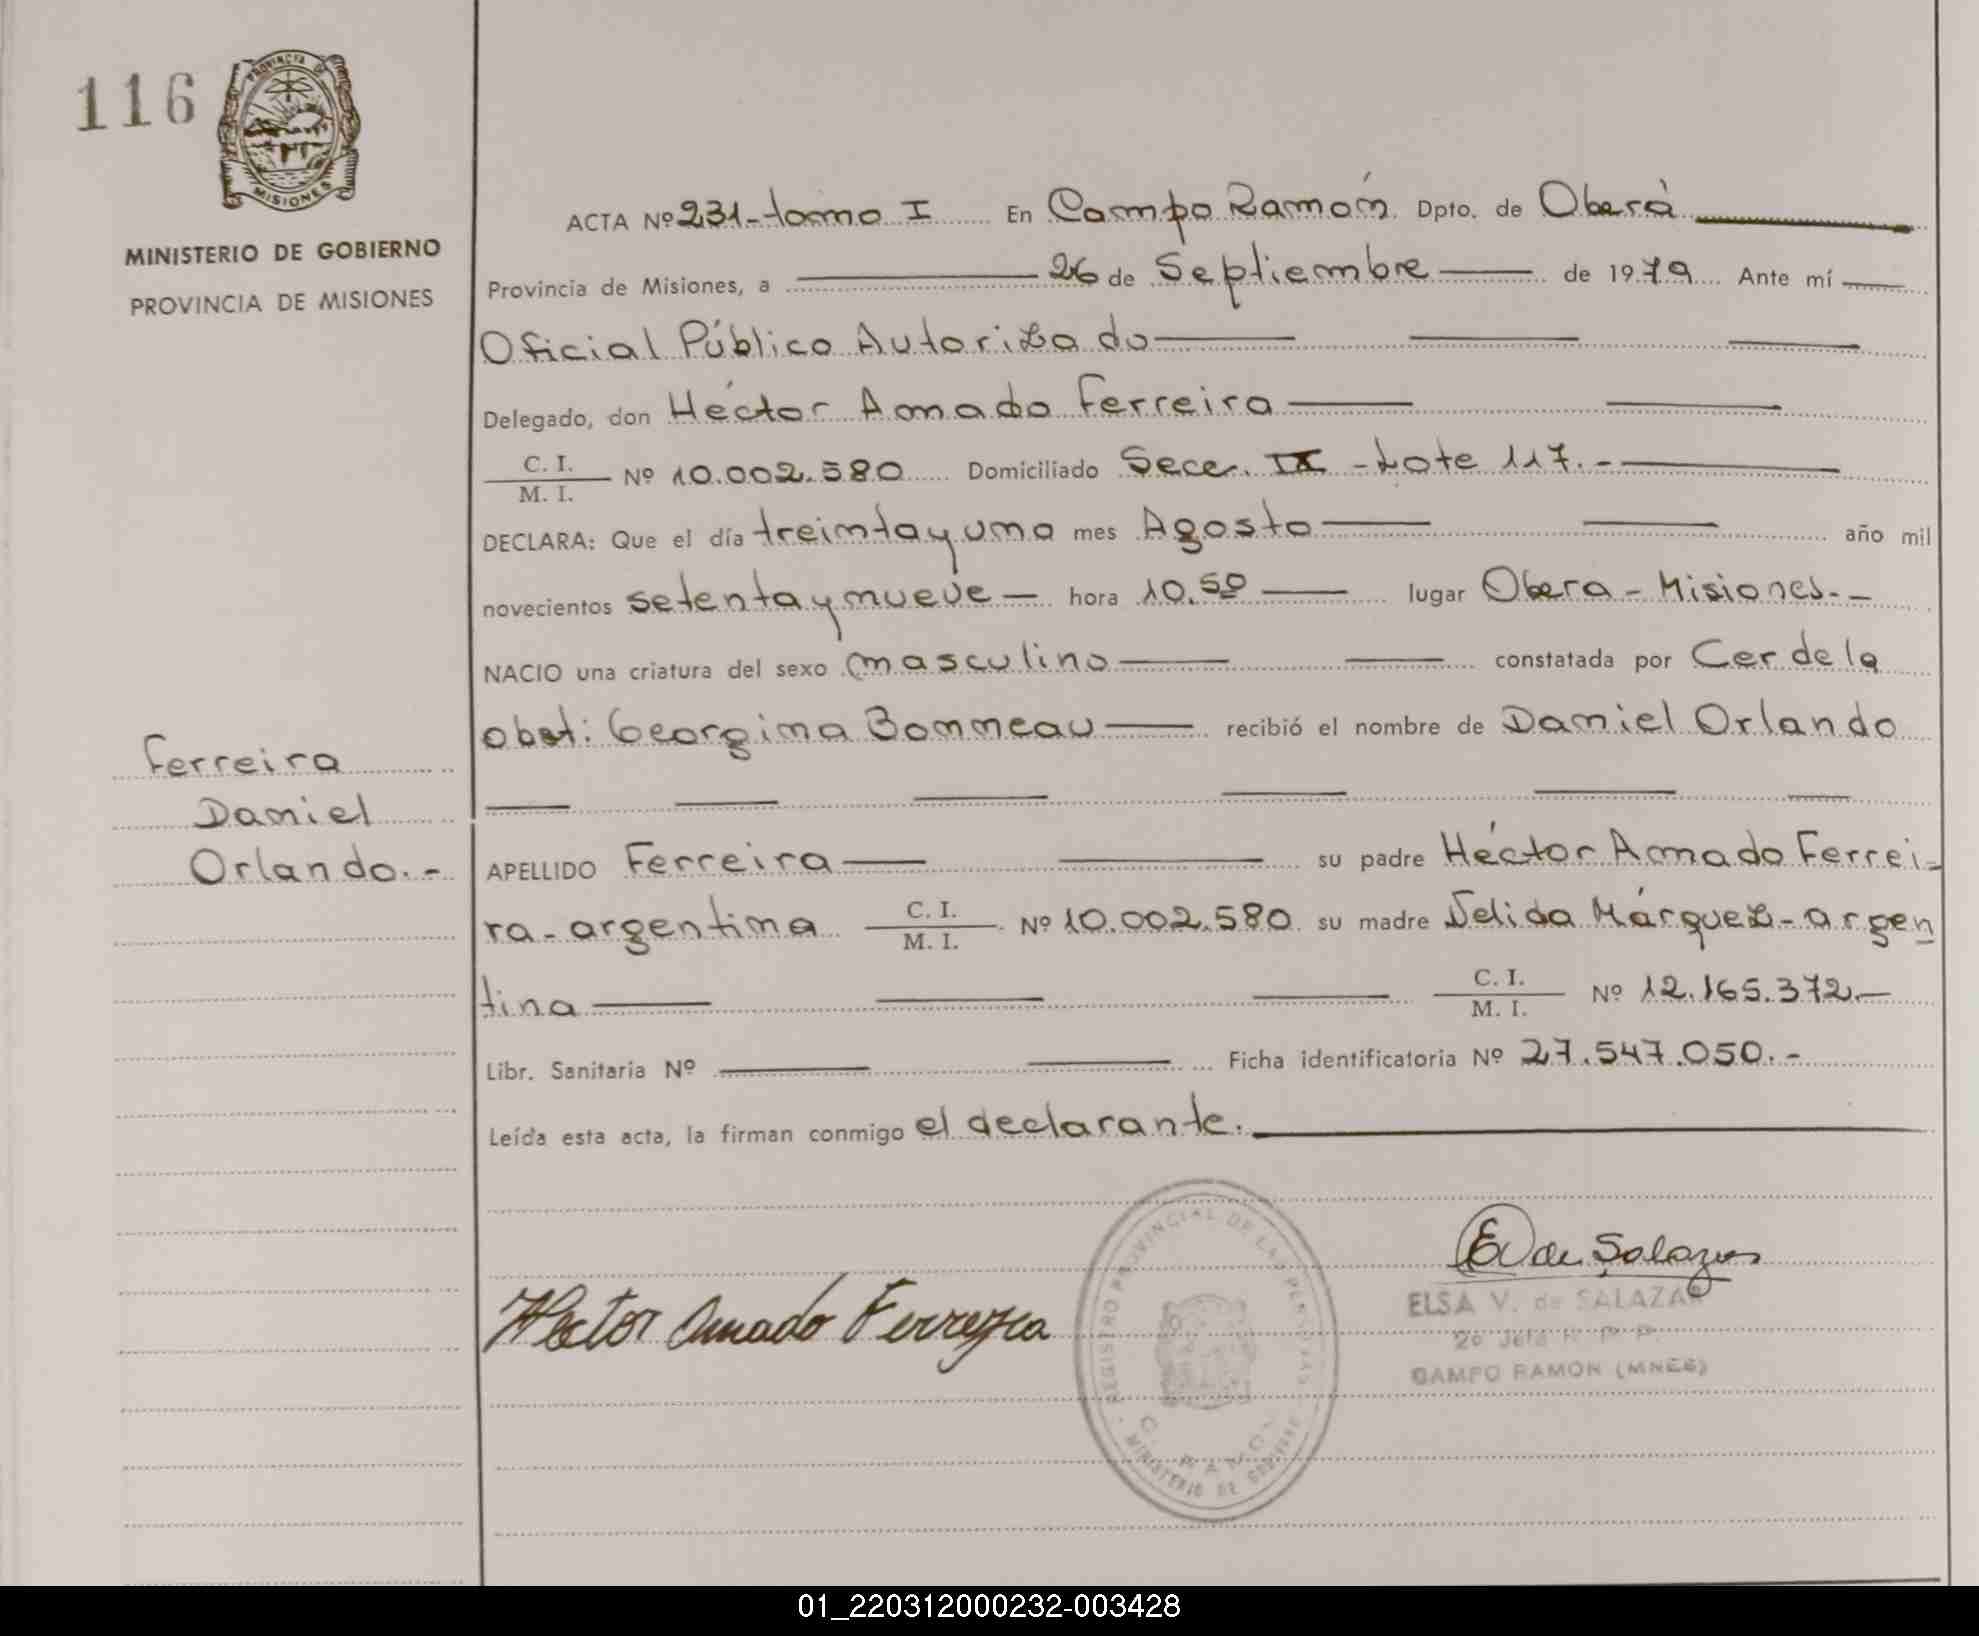 116
PROVINCIA DE
MISIONES
MINISTERIO DE GOBIERNO
PROVINCIA DE MISIONES
ACTA Nº 231-tomo I En Campo Ramón Dpto. de Oberá
Provincia de Misiones, a 26 de Septiembre de 1979 Ante mí
Oficial Público Autorizado
Delegado, don Héctor Amado Ferreira
C. I. / M. I. Nº 10.002.580 Domiciliado Secc. IX - Lote 117.-
DECLARA: Que el día treinta y uno mes Agosto año mil
novecientos setenta y nueve — hora 10.50 lugar Obera - Misiones.-
NACIO una criatura del sexo masculino constatada por Cer de la
obst: Georgina Bonneau recibió el nombre de Daniel Orlando
Ferreira
Daniel
Orlando.-
APELLIDO Ferreira su padre Héctor Amado Ferrei-
ra - argentina C. I. / M. I. Nº 10.002.580 su madre Nelida Márquez - argen
tina C. I. / M. I. Nº 12.165.372.-
Libr. Sanitaria Nº Ficha identificatoria Nº 27.547.050.-
Leída esta acta, la firman conmigo el declarante.
Hector Amado Ferreyra
REGISTRO PROVINCIAL DE LAS PERSONAS
C. RAMON
MINISTERIO DE GOBIERNO
E V de Salazar
ELSA V. de SALAZAR
2º Jefe R. P. P.
CAMPO RAMON (MNES)
01_220312000232-003428